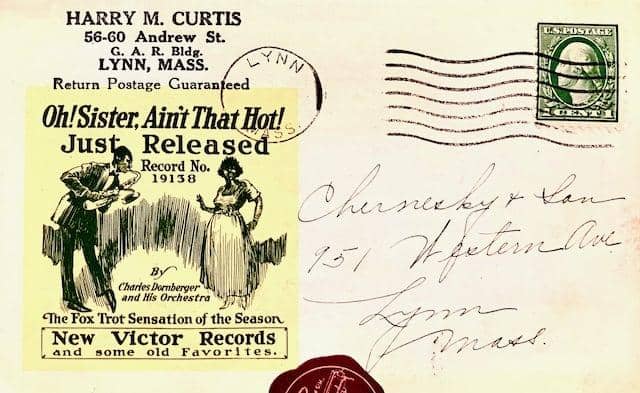 HARRY M. CURTIS
56-60 Andrew St.
G. A. R. Bldg.
LYNN, MASS.
Return Postage Guaranteed
LYNN
MASS.
U.S. POSTAGE
Oh! Sister, Ain't That Hot!
Just Released
Record No.
19138
By
Charles Dornberger
and His Orchestra
The Fox Trot Sensation of the Season
New Victor Records
and some old Favorites.
Chernesky & Son
951 Western Ave
Lynn
Mass.